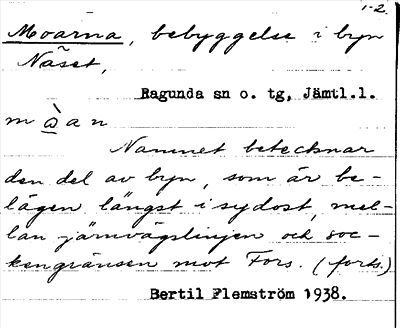 1-2.
Moarna, bebyggelse i byn
Näset,
Ragunda sn o. tg, Jämtl.l.
m å̲̀ a n
Namnet betecknar
den del av byn, som är be-
lägen längst i sydost, mel-
lan järnvägslinjen och soc-
kengränsen mot Fors. (forts.)
Bertil Flemström 1938.